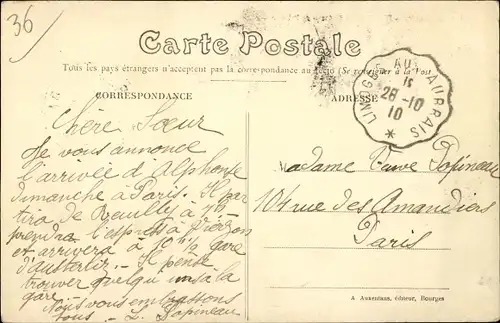 36
Carte Postale
Tous les pays étrangers n'acceptent pas la correspondance au recto (Se renseigner à la Post
CORRESPONDANCE
ADRESSE
LIMOGES AU BLANC
28 -10
10
Chère Sœur
Je vous annonce
l'arrivée d'Alphonse
dimanche à Paris. Il par
tira de Reuilly à
prendra l'express à Vierzon
et arrivera à 10h¼ gare
d'Austerlitz. Il pense
trouver quelqu'uns à la
gare.
Nous vous embrassons
tous - L. Papineau
Madame Veuve Papineau
104 rue des Amandiers
Paris
A. Auxenfans, éditeur, Bourges